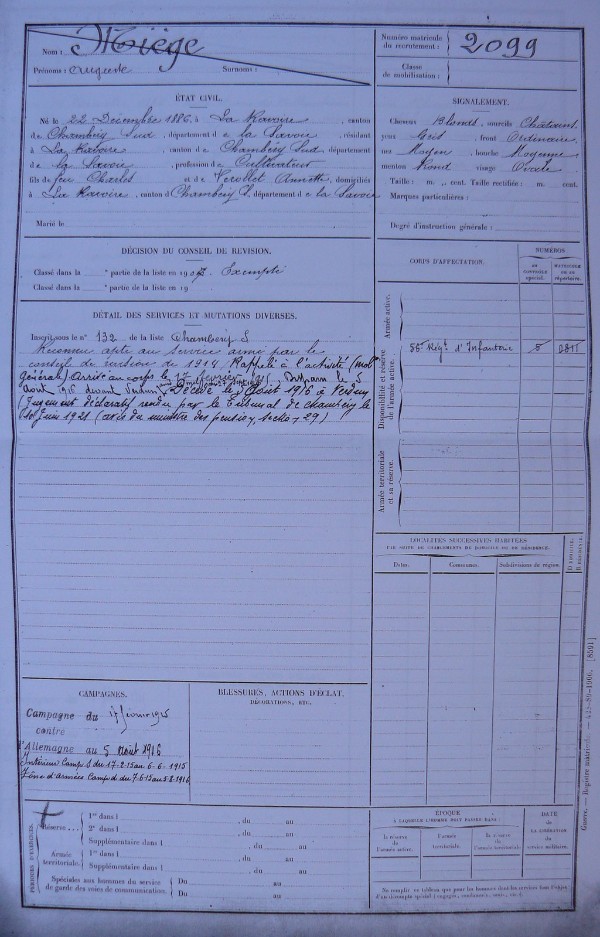 Nom : Miège
Prénoms : Auguste Surnoms :
Numéro matricule du recrutement : 2099
Classe de mobilisation :
ÉTAT CIVIL.
Né le 22 Décembre 1886, à La Ravoire, canton
de Chambéry Sud, département de la Savoie, résidant
à La Ravoire, canton de Chambéry Sud, département
de la Savoie, profession de Cultivateur
fils de feu Charles et de Annette, domiciliés
à La Ravoire, canton de Chambéry S., département de la Savoie
Marié le
SIGNALEMENT.
Cheveux Blonds, sourcils Châtains
yeux Gris, front Ordinaire
nez Moyen, bouche Moyenne
menton Rond visage Ovale
Taille : m. cent. Taille rectifiée : m. cent.
Marques particulières :
Degré d'instruction générale :
DÉCISION DU CONSEIL DE REVISION.
Classé dans la partie de la liste en 1907. Exempté
Classé dans la partie de la liste en 19
DÉTAIL DES SERVICES ET MUTATIONS DIVERSES.
Inscrit sous le n° 132 de la liste Chambéry S
Reconnu apte au service armé par le
conseil de révision de 1914. Rappelé à l'activité (Mob
générale) Arrivé au corps le 17 février 1915. Disparu le 5
Août 1916 devant Verdun. Décédé le 5 Août 1916 à Verdun
(Jugement déclaratif rendu par le Tribunal de Chambéry le
Juin 1921 (avis du ministre des pensions,
CORPS D'AFFECTATION.
NUMÉROS
au contrôle spécial.
matricule ou au répertoire.
Armée active.
Disponibilité et réserve de l'armée active.
Rég.t d'Infanterie
Armée territoriale et sa réserve.
LOCALITÉS SUCCESSIVES HABITÉES
PAR SUITE DE CHANGEMENTS DE DOMICILE OU DE RÉSIDENCE.
Dates. Communes. Subdivisions de région. D. domicile. R. résidence.
CAMPAGNES.
Campagne du 17 février 1915
contre
l'Allemagne au 5 Août 1916
Intérieur Camp S du 17-2-15 au 6-6-1915
Zone d'Armées Camp d du 7-6-15 au 5-8-1916
BLESSURES, ACTIONS D'ÉCLAT,
DÉCORATIONS, ETC.
PÉRIODES D'EXERCICES.
Réserve ...
1re dans l , du au
2e dans l , du au
Supplémentaire dans l , du au
Armée territoriale.
1re dans l , du au
Supplémentaire dans l , du au
Spéciales aux hommes du service de garde des voies de communication.
Du au
Du au
ÉPOQUE
À LAQUELLE L'HOMME DOIT PASSER DANS :
la réserve de l'armée active.
l'armée territoriale.
la réserve de l'armée territoriale.
DATE de LA LIBÉRATION du service militaire.
Guerre. — Registre matricule.